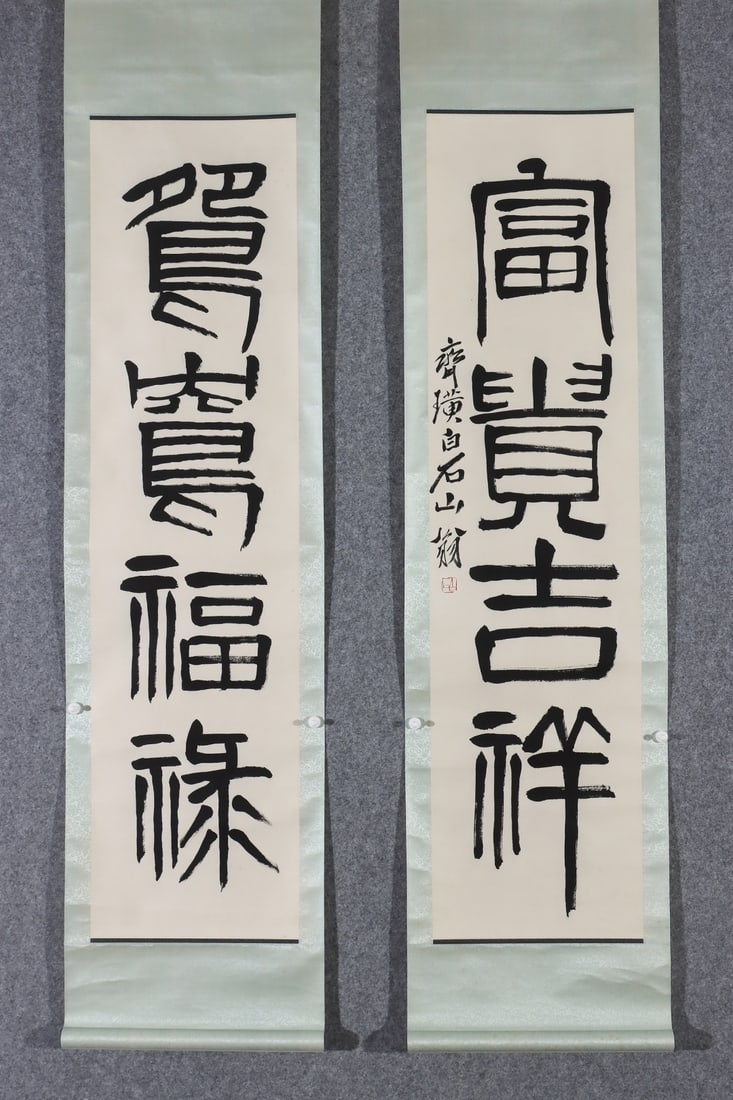 富貴吉祥
齊璜白石山翁
鴛鴦福祿